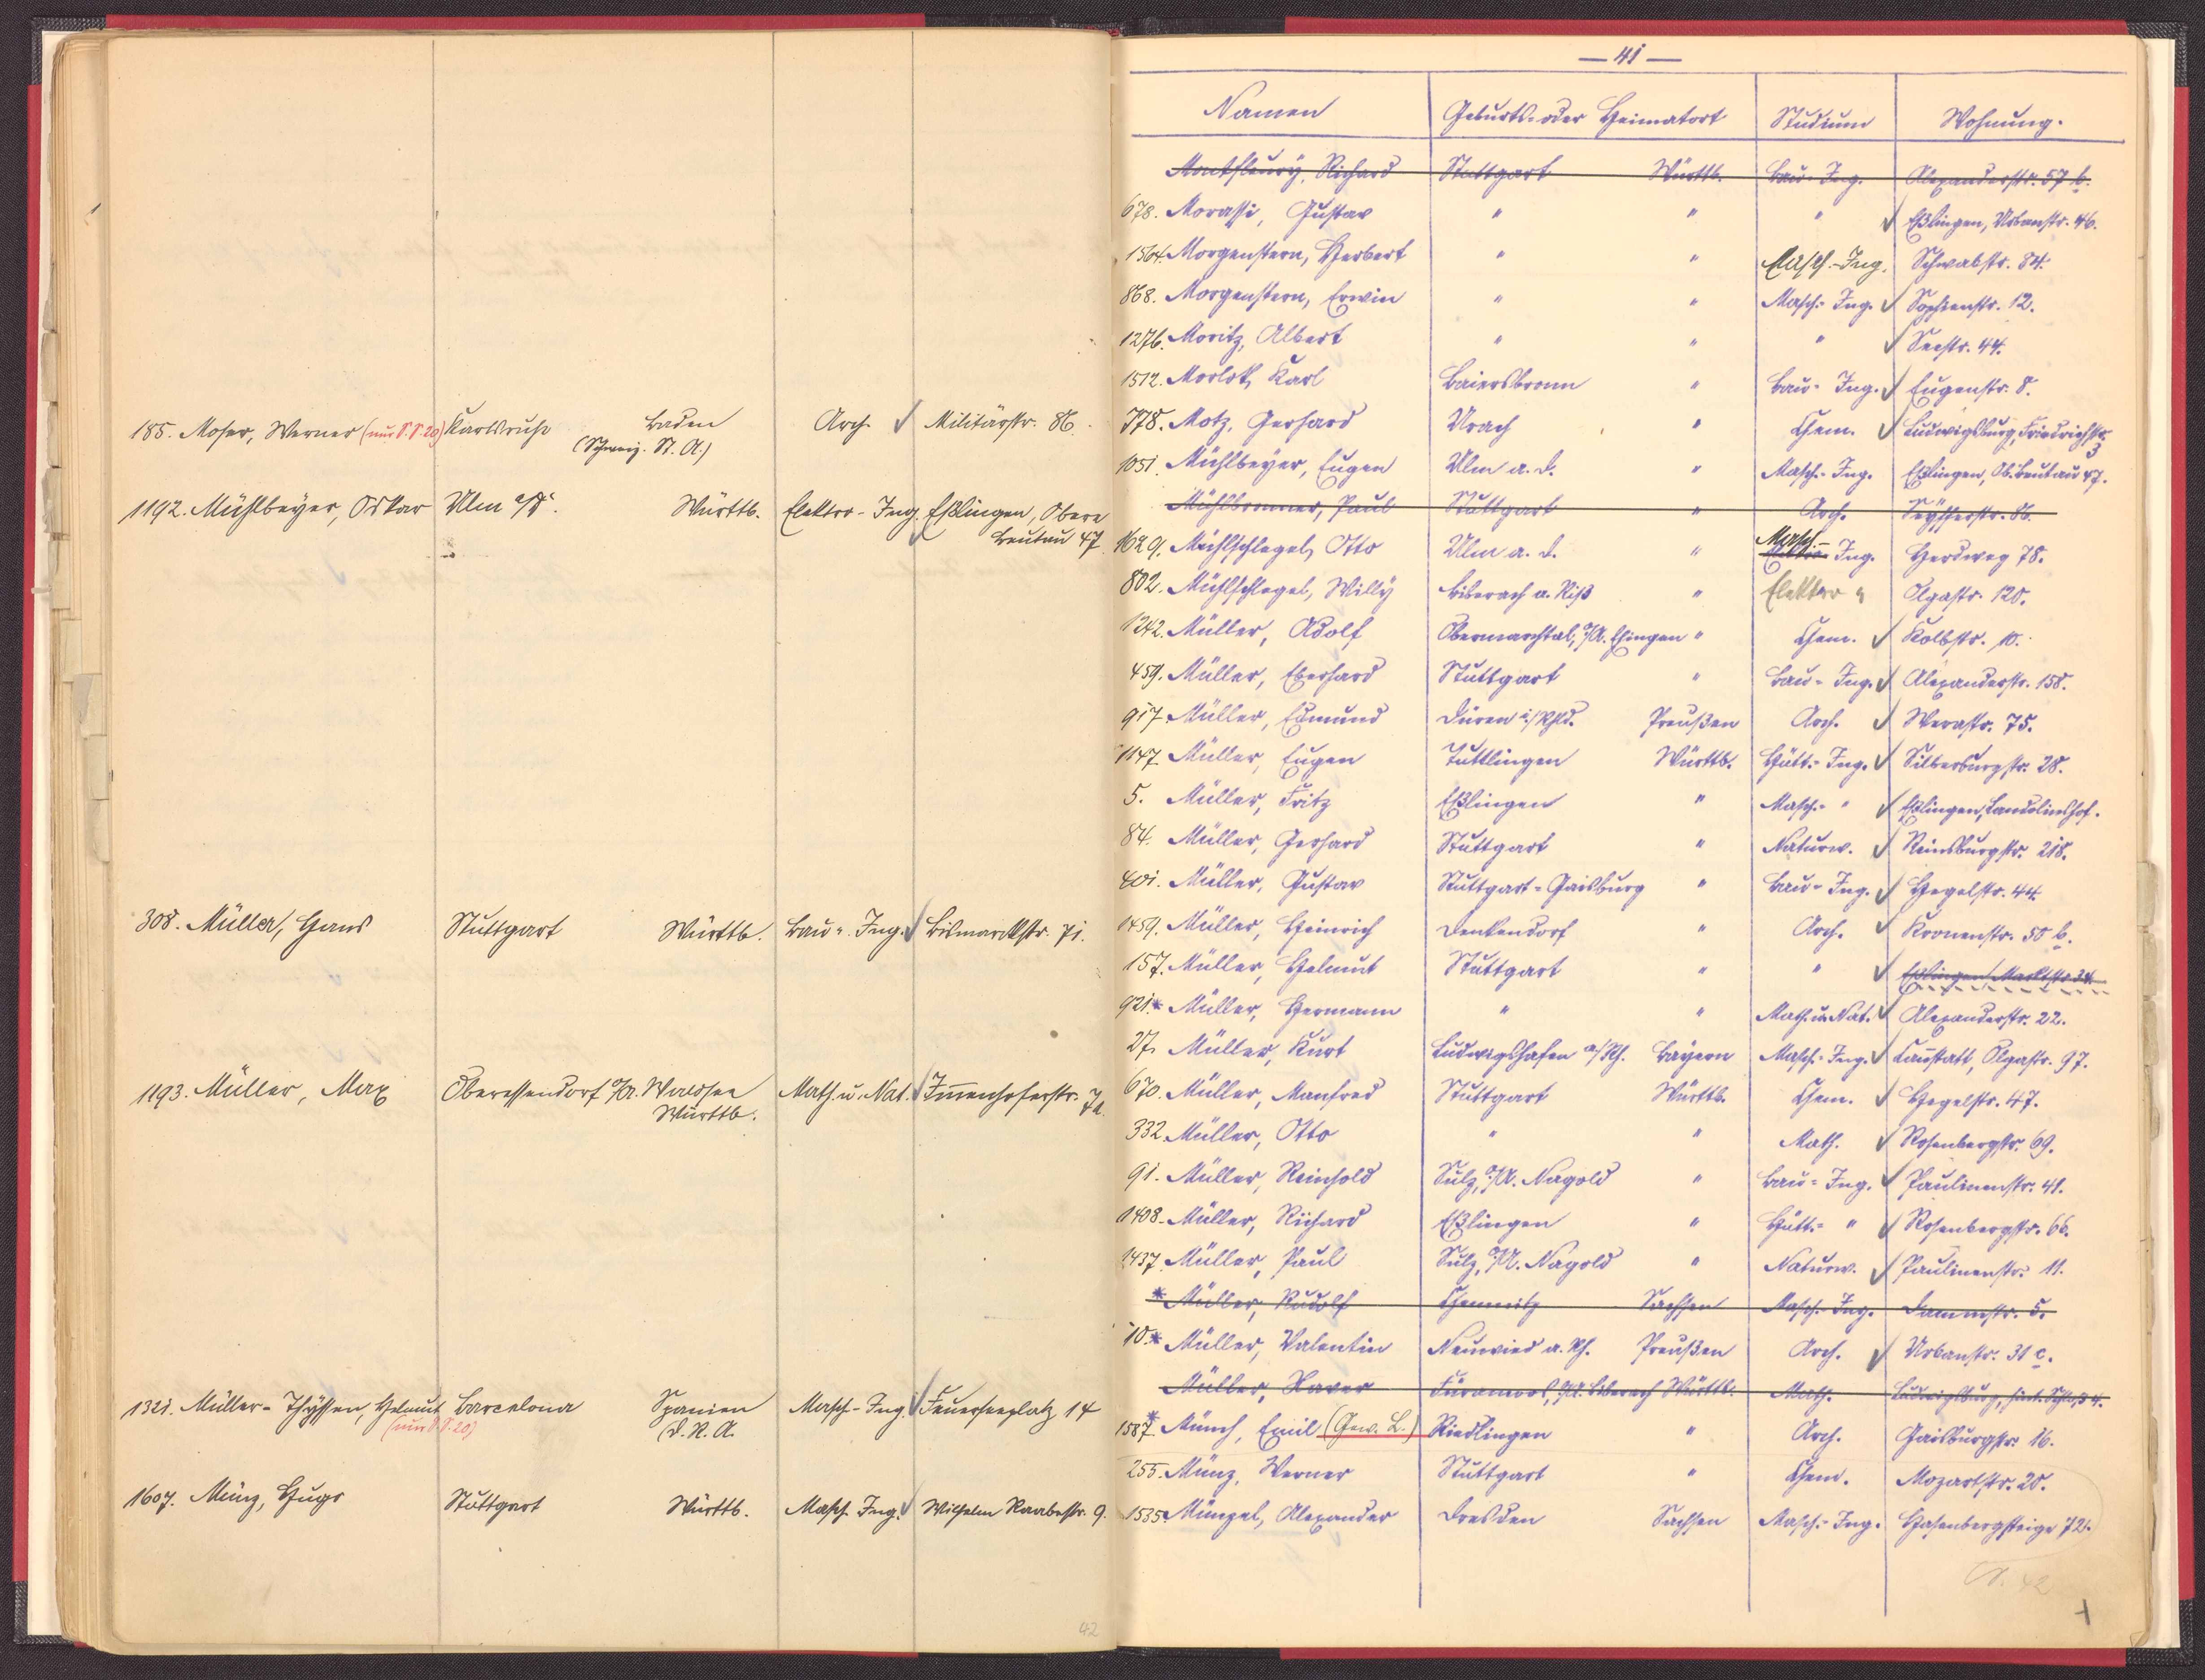 185. Moser, Werner (nur S.S. 20) Karlsruhe Baden Arch. ✓ Militärstr. 86.
(Schweiz. St. A.)
1192. Mühlbeyer, Oskar Ulm a/D. Württb. Elektro-Ing. Eßlingen, Obere
✓ Beutau 47
308. Müller, Hans Stuttgart Württb. Bau-Ing. ✓ Bismarckstr. 71.
1193. Müller, Max Oberessendorf O/A. Waldsee Math. u. Nat. ✓ Immenhoferstr.
Württb.
1321. Müller-Thyssen, Helmut Barcelona Spanien Masch.-Ing. ✓ Feuerseeplatz 14
(nur S.S. 20) (D.R.A.
1607. Münz, Hugo Stuttgart Württb. Masch. Ing. ✓ Wilhelm Raabestr. 9.
42
— 41 —
Namen Geburts- oder Heimatort Studium Wohnung.
Montfleury, Richard Stuttgart Württb. Bau-Ing. Alexanderstr. 57 b.
678. Morassi, Gustav " " " ✓ Eßlingen, Urbanstr. 46.
1564. Morgenstern, Herbert " " Masch.-Ing. Schwabstr. 84.
868. Morgenstern, Erwin " " Masch.-Ing. ✓ Sophienstr. 12.
1276. Moritz, Albert " " " ✓ Seestr. 44.
1512. Morlok, Karl Baiersbronn " Bau-Ing. ✓ Eugenstr. 8.
778. Motz, Gerhard Urach " Chem. ✓ Ludwigsburg, Friedrichstr.
3
1051. Mühlbeyer, Eugen Ulm a. D. " Masch.-Ing. Eßlingen, Ob. Beutau 47.
Mühlbronner, Paul Stuttgart " Arch. Seyfferstr. 86.
Masch.-
1629. Mühlschlegel, Otto Ulm a. D. " Elektro-Ing. Herdweg 78.
802. Mühlschlegel, Willy Biberach a. Riß " Elektro " Olgastr. 120.
1242. Müller, Adolf Obermarchtal, O/A. Ehingen " Chem. ✓ Kolbstr. 10.
459. Müller, Eberhard Stuttgart " Bau-Ing. ✓ Alexanderstr. 158.
917. Müller, Edmund Düren i/Rhld. Preußen Arch. ✓ Werastr. 75.
1147. Müller, Eugen Tuttlingen Württb. Hütt.-Ing. ✓ Silberburgstr. 28.
5. Müller, Fritz Eßlingen " Masch.- " ✓ Eßlingen, Landolinshof.
84. Müller, Gerhard Stuttgart " Naturw. ✓ Reinsburgstr. 218.
401. Müller, Gustav Stuttgart-Gaisburg " Bau-Ing. ✓ Hegelstr. 44.
1459. Müller, Heinrich Denkendorf " Arch. ✓ Kronenstr. 50 b.
157. Müller, Helmut Stuttgart " " ✓ Eßlingen, Marktstr. 34.
921.* Müller, Hermann " " Math. u. Nat. ✓ Alexanderstr. 22.
27. Müller, Kurt Ludwigshafen a/Rh. Bayern Masch.-Ing. ✓ Canstatt, Olgastr. 97.
670. Müller, Manfred Stuttgart Württb. Chem. ✓ Hegelstr. 47.
332. Müller, Otto " " Math. ✓ Rosenbergstr. 69.
91. Müller, Reinhold Sulz, O/A. Nagold " Bau-Ing. ✓ Paulinenstr. 41.
1408. Müller, Richard Eßlingen " Hütt.- " ✓ Rosenbergstr. 66.
1437. Müller, Paul Sulz, O/A. Nagold " Naturw. ✓ Paulinenstr. 11.
* Müller, Rudolf Chemnitz Sachsen Masch.-Ing. Dammstr. 5.
10.* Müller, Valentin Neuwied a. Rh. Preußen Arch. ✓ Urbanstr. 31 c.
Müller, Xaver Füramoos, O/A. Biberach Württb. Math. Ludwigsburg, hint. Schloßstr. 4.
1587.* Münch, Emil (Gew. L.) Riedlingen " Arch. Gaisburgstr. 16.
255. Münz, Werner Stuttgart " Chem. Mozartstr. 20.
1535. Münzel, Alexander Dresden Sachsen Masch.-Ing. Hasenbergsteige 72.
42